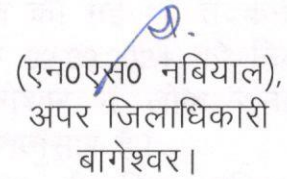 (एन0एस0 नबियाल),
अपर जिलाधिकारी
बागेश्वर।